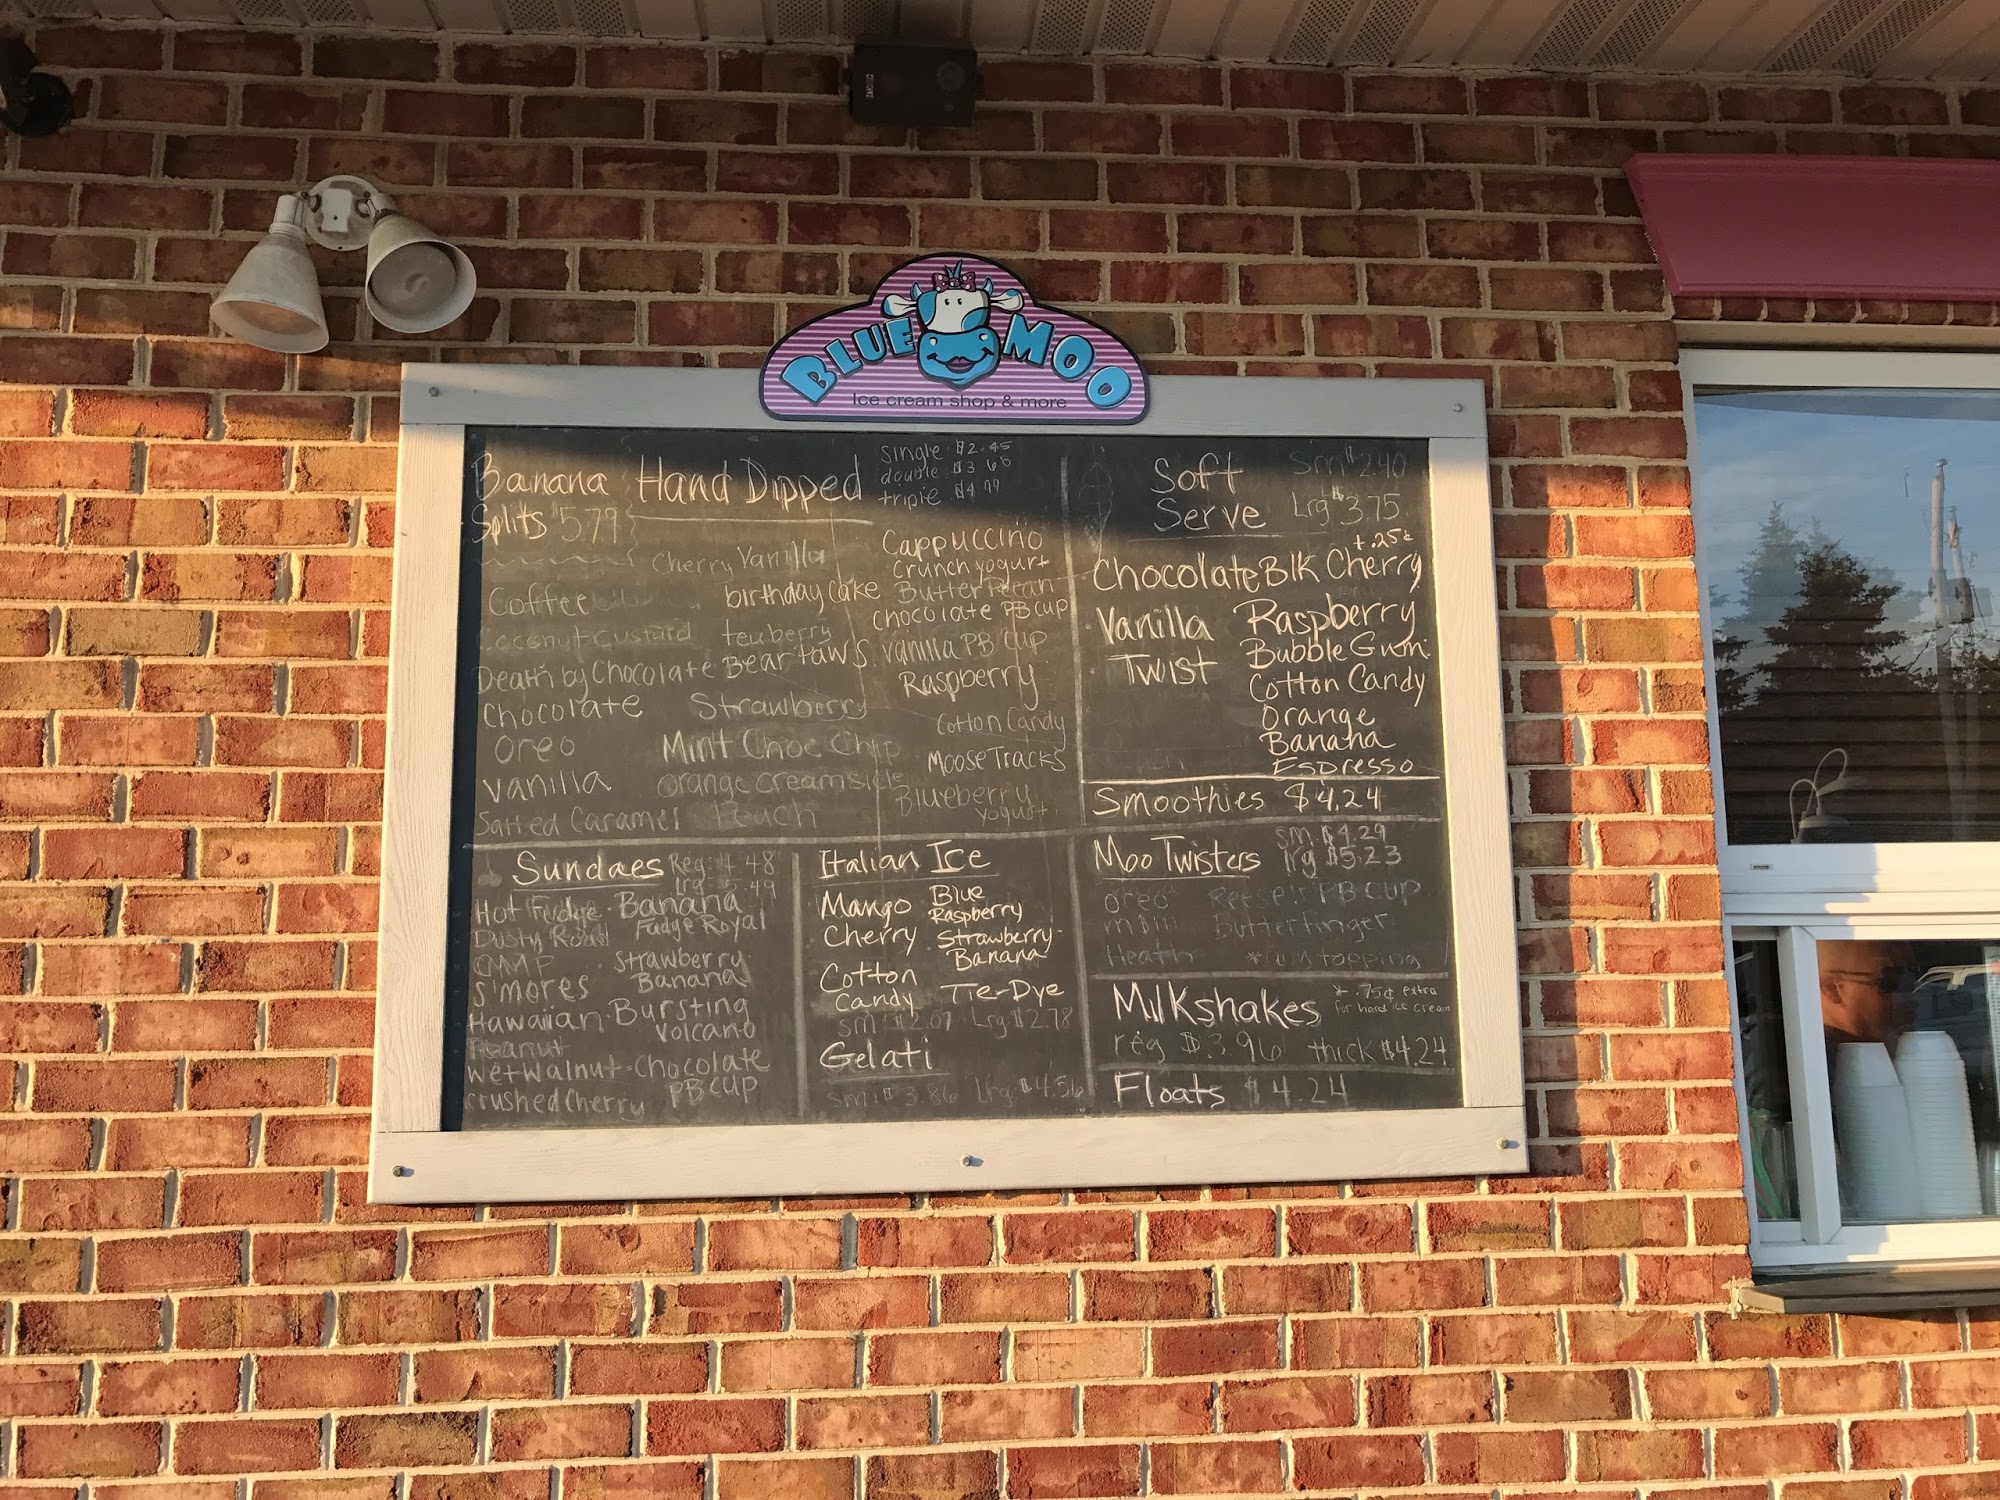 BLUE MOO
Ice cream shop & more
Banana
Splits $5.79
Hand Dipped
single $2.45
double $3.68
triple $4.99
Cherry Vanilla
Coffee
birthday cake
Coconut Custard
teaberry
Death by Chocolate
Bear Paws
Chocolate
Strawberry
Oreo
Mint Choc Chip
Vanilla
Orange Creamsicle
Salted Caramel
Peach
Cappuccino
Crunch yogurt
Butter Pecan
Chocolate PB cup
Vanilla PB Cup
Raspberry
Cotton Candy
Moose Tracks
Blueberry
yogurt
Soft
Serve
Sm $2.40
Lrg $3.75
+.25¢
Chocolate
Vanilla
Twist
Blk Cherry
Raspberry
Bubble Gum
Cotton Candy
Orange
Banana
Espresso
Smoothies $4.24
Sundaes
Reg: 4.48
Lrg: 5.49
Hot Fudge · Banana
Dusty Road
Fudge Royal
CMP
Strawberry
S'mores
Banana
Hawaiian · Bursting
Volcano
Peanut
Wet Walnut · Chocolate
PB cup
crushed Cherry
Italian Ice
Mango
Cherry
Cotton
Candy
Blue
Raspberry
Strawberry
Banana
Tie-Dye
Sm: $2.07 Lrg $2.78
Gelati
Sm: $3.86 Lrg: $4.56
Moo Twisters
sm. $4.29
lrg $5.23
oreo Reese's PB cup
m&m Butterfinger
Heath * any topping
Milkshakes
* .75¢ extra
for hard ice cream
reg $3.96 thick $4.24
Floats $4.24